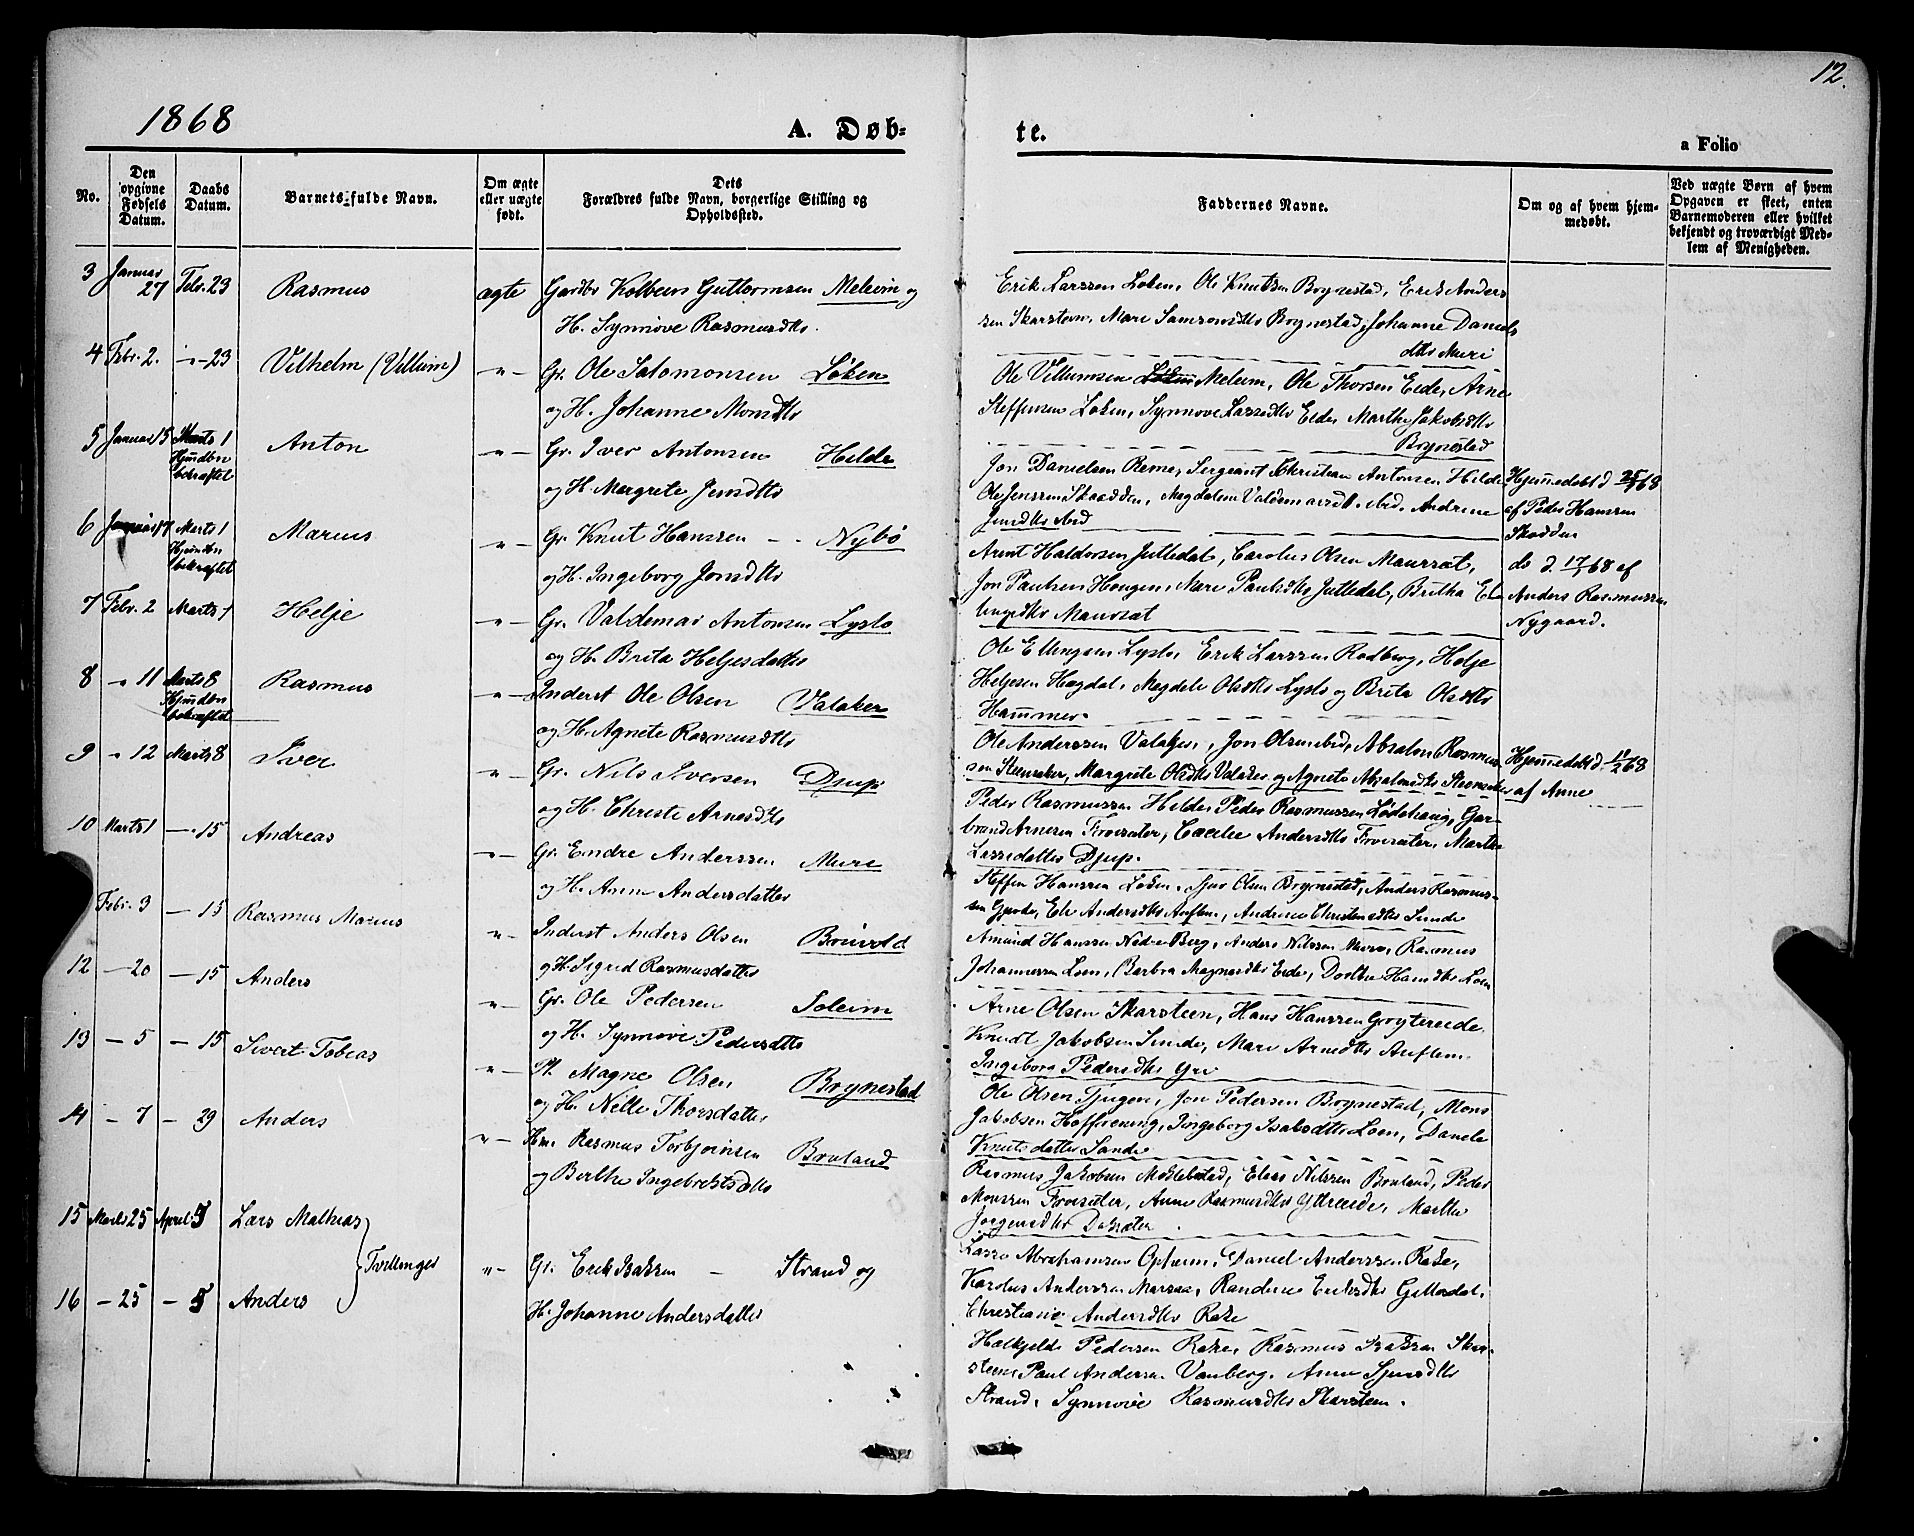 12.
1868
A. Døb-
te.
a Folio
No.
Den opgivne Fødsels Datum.
Daabs Datum.
Barnets fulde Navn.
Om ægte eller uægte født.
Dets Forældres fulde Navn, borgerlige Stilling og Opholdssted.
Faddernes Navne.
Om og af hvem hjem-medøbt.
Ved uægte Børn af hvem Opgaven er skeet, enten Barnemoderen eller hvilket bekjendt og troværdigt Med-lem af Menigheden.
3 Januar 27 Febr. 23 Rasmus ægte Gardbr Kolbeen Guttormsen Meleim og
H. Synnøve Rasmusdtr.
Erik Larssen Løken, Ole Knutsen Brynestad, Erik Anders
sen Skarsteen, Mari Samsonsdtr Brynestad, Johanne Daniels
dtr Muri
4 Febr. 2. -"- 23 Vilhelm (Villum) -"- Gr. Ole Salomonsen Løken
og H. Johanne Monsdtr
Ole Villumsen Meleim, Ole Thorsen Eide, Arne
Steffensen Løken, Synnøve Lassedtr Eide, Marthe Jakobsdtr
Brynestad
5 Januar 15 Marts 1 Hjmdbn bekræftet Anton -"- Gr. Iver Antonsen Hilde
og H. Margrete Jensdtr
Jon Danielsen Reme, Sergeant Christian Antonsen Hilde
Ole Jenssen Skaadden, Magdalene Valdemarsdtr ibid. Andrine
Jensdtr ibid
Hjemmedøbt d 25/1 68
af Peder Hanssen
Skadden
6 Januar 17 Marts 1 Hjmdbn bekræftet Marius -"- Gr. Knut Hanssen - - Nybø
og H. Ingeborg Jonsdtr
Arent Haldorsen Juttedal, Carolus Olsen Maursæt,
Jon Paulsen Haugen, Mari Paulsdtr Juttedal, Britha El
lingsdtr Maursæt
do d. 17/1 68 af
Anders Rasmussen
Nygaard.
7 Febr. 2 Marts 1 Helje -"- Gr. Valdemar Antonsen Lyslo
og H. Brita Heljesdatter
Ole Ellingsen Lyslo, Erik Larssen Rødberg, Helje
Heljesen Hægdal, Magdele Olsdtr Lyslo og Brita Olsdtr
Hammer.
8 -"- 11 Marts 8 Hjmdbn bekræftet Rasmus -"- Inderst Ole Olsen Valaker
og H. Agnete Rasmusdtr
Ole Anderssen Valaker, Jon Olsen ibid, Absalon Rasmus
sen Steensaker, Margrete Olsdtr Valaker og Agnete Absalonsdtr
Hjemmedøbt d. 11/2 68
af Anne
9 -"- 12 Marts 8 Iver -"- Gr. Nils Iversen Djup
og H. Christe Arnesdtr
Peder Rasmussen Hilde, Peder Rasmussen Lødehaug, Gar-
brand Arnesen Frøisæter, Cæcilie Andersdtr Frøisæter, Marthe
Lassedatter Djup.
10 Marts 1 -"- 15 Andreas -"- Gr. Endre Anderssen Muri
og H. Anne Andersdatter
Steffen Hanssen Løken, Olsen Brynestad, Anders Rasmus-
sen, Eli Andersdtr Auflem, Andrine Christensdtr Sunde
Febr. 3 - 15 Rasmus Marius -"- Inderst Anders Olsen
og H. Sigrid Rasmusdatter
Amund Hanssen Nedre Berg, Anders Nilssen, Rasmus
Johannessen Loen, Barbra Magnesdtr Eide, Dorthe Hansdtr Loen
12 - 20 - 15 Anders -"- Gr. Ole Pedersen Soleim
og H. Synnøve Pedersdtr
Arne Olsen Skarsteen, Hans Hanssen Gryteride,
Knudt Jakobsen Sunde, Mari Arnedtr Auflem
Ingeborg Pedersdtr Gri
13 - 5 - 15 Sivert Tobias -"- Pl. Magne Olsen Brynestad
og H. Nille Thorsdatter
Ole Olsen Tjugen, Jon Pedersen Brynestad, Mons
Jakobsen, Ingeborg Isaksdtr Loen, Danele
Knutsdatter Sande
14 - 7 - 29 Anders -"- Hm. Rasmus Torbjørnsen Bruland
og Berthe Ingebretsdtr
Rasmus Jakobsen Moldestad, Elias Nilssen Bruland, Peder
Monssen Frøisæter, Anne Rasmusdtr Yttreide, Marthe
Jørgensdtr
15 Marts 25 April 5 Lars Mathias
Tvillinger -"- Gr. Erik Isaksen - Strand og
H. Johanne Andersdatter
Lasse Abrahamsen Opheim, Daniel Anderssen Rake,
Karolus Anderssen, Randine Eriksdtr,
Christiane Andersdtr Rake
16 - 25 - 5 Anders
Halkjeld Pedersen Rake, Rasmus Isaksen Skar-
steen, Paul Andersen Vanberg, Anne Sjursdtr
Strand, Synnøve Rasmusdtr Skarsteen.